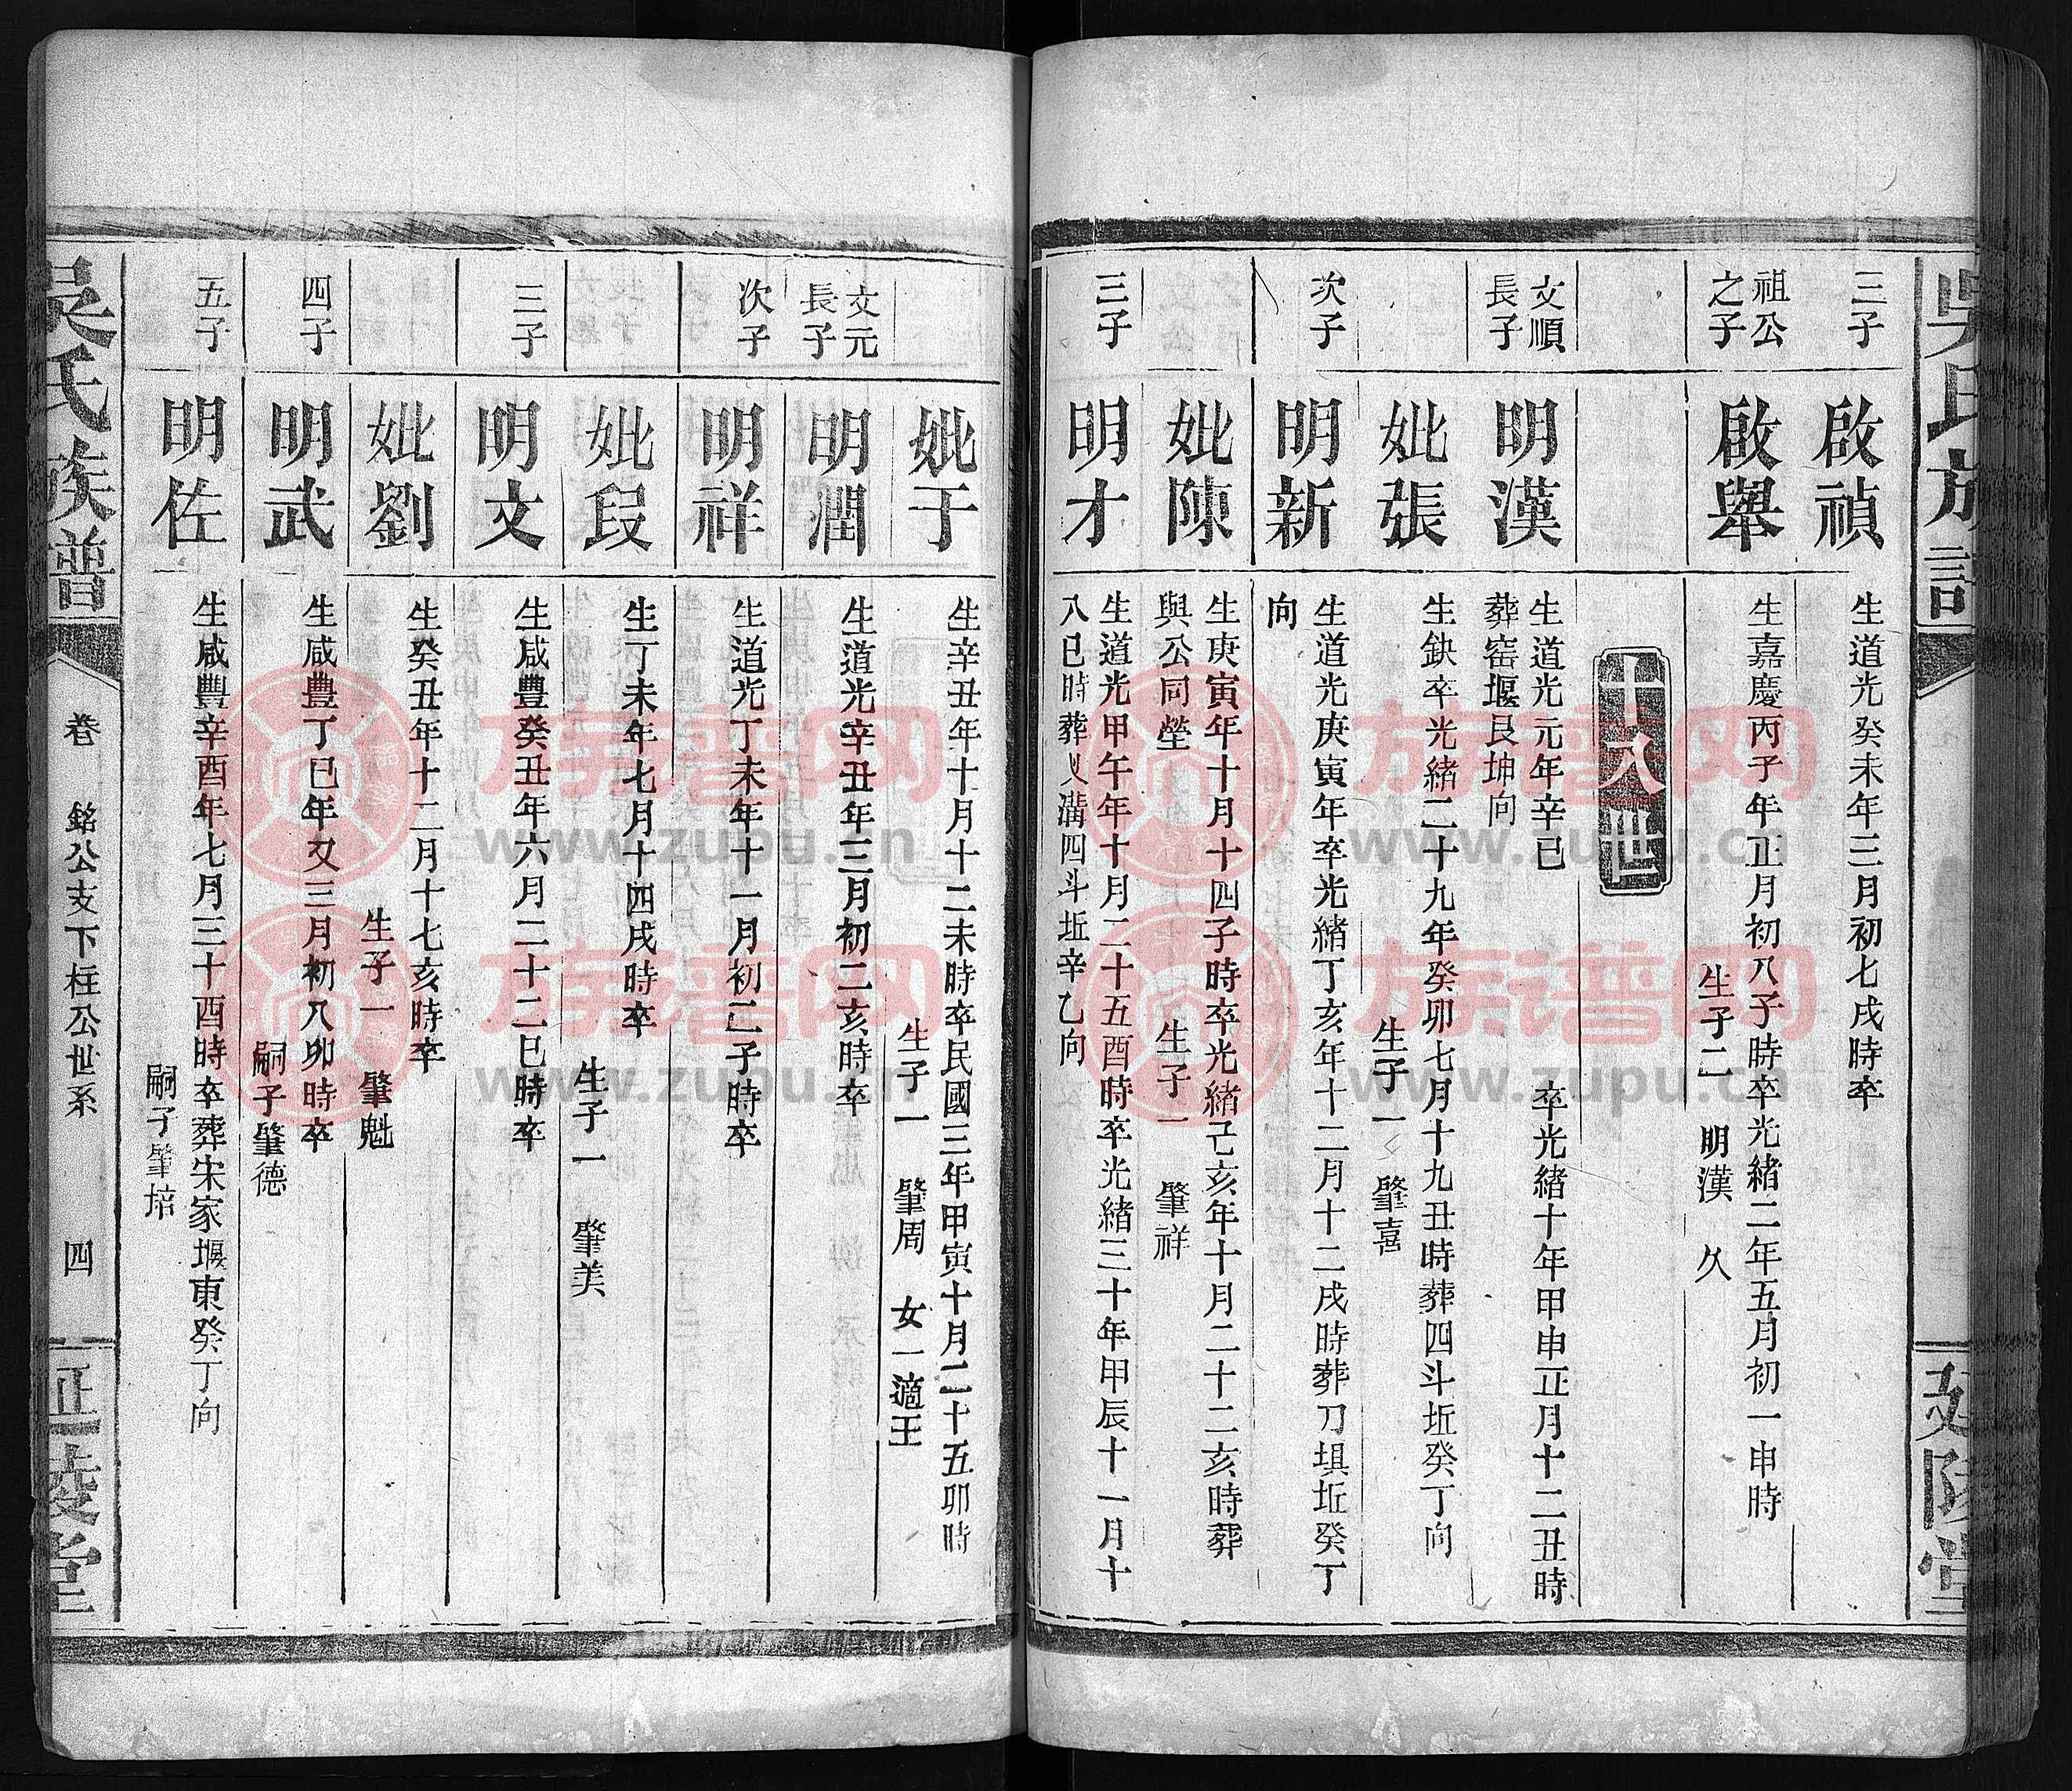 吳氏族譜
延陵堂
三子
啟禎
生道光癸未年三月初七戌時卒
祖公
之子
啟舉
生嘉慶丙子年正月初八子時卒光緒二年五月初一申時
生子二 明漢 久
十八世
文順
長子
明漢
生道光元年辛巳 卒光緒十年甲申正月十二丑時
葬窑堰艮坤向
妣張
生缺卒光緒二十九年癸卯七月十九丑時葬四斗坵癸丁向
生子一 肇喜
次子
明新
生道光庚寅年卒光緒丁亥年十二月十二戌時葬刀埧坵癸丁
向
妣陳
生庚寅年十月十四子時卒光緒己亥年十月二十二亥時葬
與公同塋 生子一 肇祥
三子
明才
生道光甲午年十月二十五酉時卒光緒三十年甲辰十一月十
八巳時葬乂溝四斗坵辛乙向
妣于
生辛丑年十月十二未時卒民國三年甲寅十月二十五卯時
生子一 肇周 女一適王
文元
長子
明潤
生道光辛丑年三月初二亥時卒
次子
明祥
生道光丁未年十一月初二子時卒
妣段
生丁未年七月十四戌時卒
生子一 肇美
三子
明文
生咸豐癸丑年六月二十二巳時卒
妣劉
生癸丑年十二月十七亥時卒
生子一 肇魁
四子
明武
生咸豐丁巳年又三月初八卯時卒
嗣子肇德
五子
明佐
生咸豐辛酉年七月三十酉時卒葬宋家堰東癸丁向
嗣子肇培
吳氏族譜
卷 銘公支下柱公世系 四
延陵堂
族谱网
www.zupu.cn
族谱网
www.zupu.cn
族谱网
www.zupu.cn
族谱网
www.zupu.cn